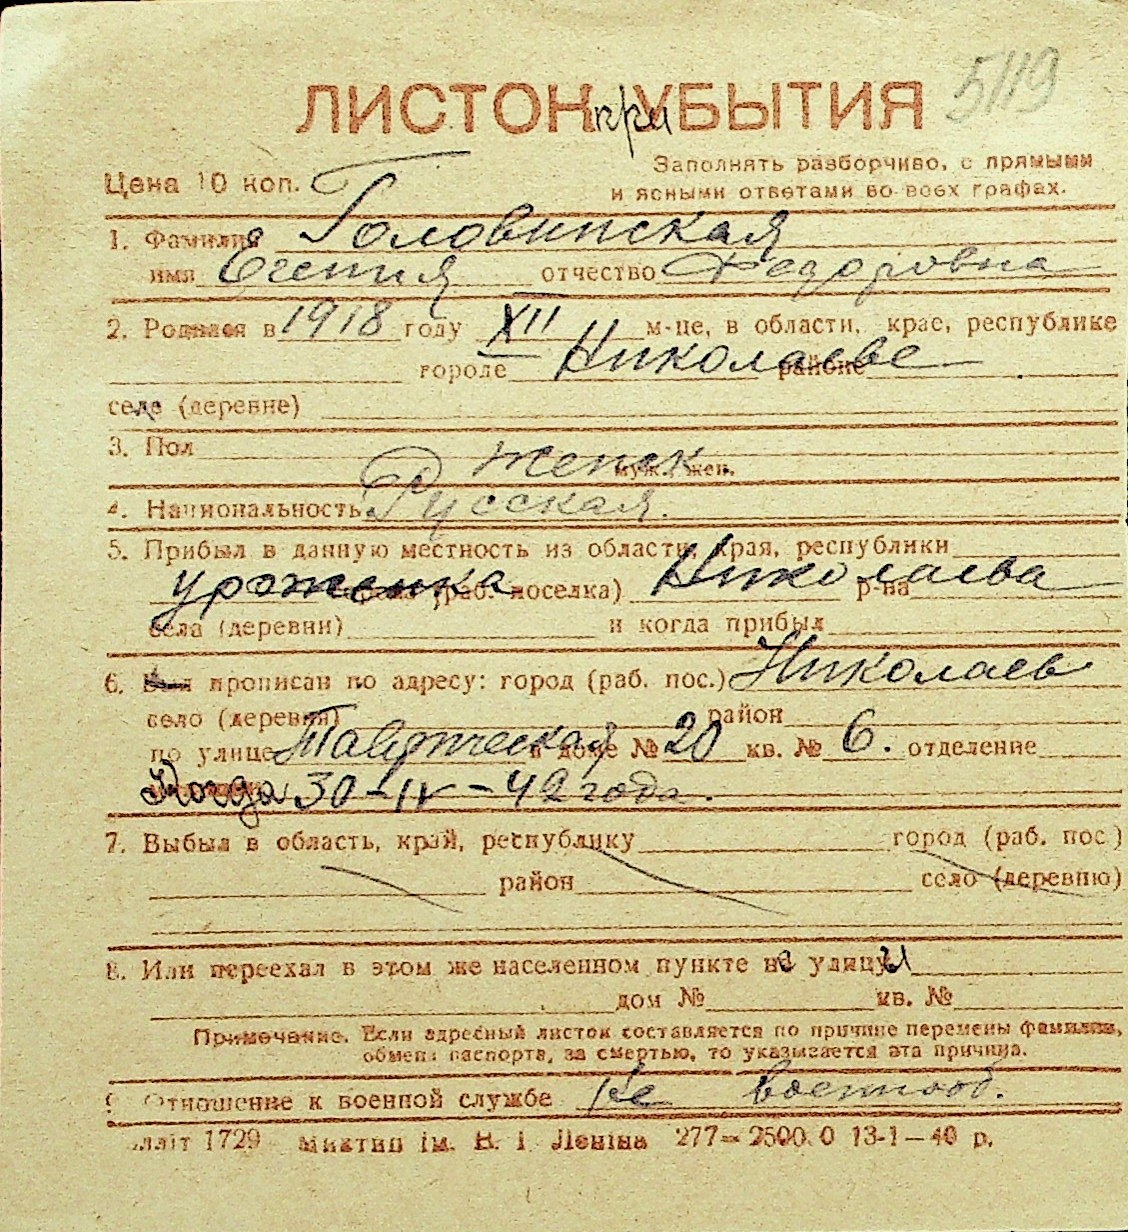 5119
ЛИСТОК при УБЫТИЯ
Заполнять разборчиво, с прямыми
Цена 10 коп.
и ясными ответами во всех графах.
1. Фамилия Головинская
имя Евгения отчество Федоровна
2. Родился в 1918 году XII м-це, в области, крае, республике
городе Николаеве районе
селе (деревне)
3. Пол Женск.
муж., жен.
4. Национальность Русская.
5. Прибыл в данную местность из области, края, республики
уроженка (раб. поселка) Николаева р-на
села (деревни) и когда прибыл
6. Был прописан по адресу: город (раб. пос.) Николаев
село (деревня) район
по улице Таврическая в доме № 20 кв. № 6. отделение
Когда 30-IV-42 года.
7. Выбыл в область, край, республику город (раб. пос)
район село (деревню)
8. Или переехал в этом же населенном пункте на улицы
дом № кв. №
Примечание. Если адресный листок составляется по причине перемены фамилии,
обмена паспорта, за смертью, то указывается эта причина.
9. Отношение к военной службе Не военнооб.
літ 1729 Миктип ім. В. І Леніна 277—2500.0 13-1—40 р.